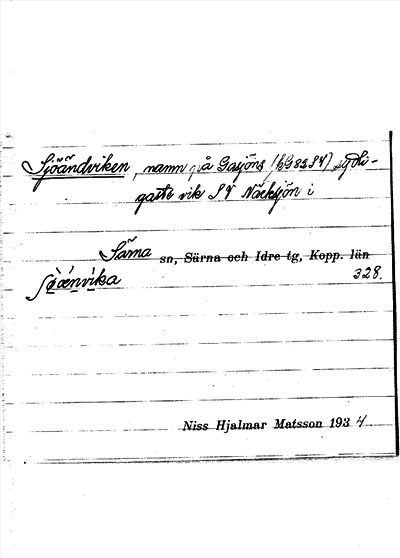 Sjöändviken, namn på Gasjöns (bG83SV) sydli-
gaste vik S V Näcksjön i
Särna sn, Särna och Idre tg, Kopp. län
328.
Niss Hjalmar Matsson 1934